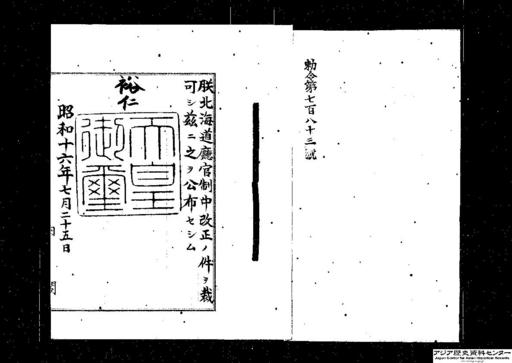 勅令第七百八十三號
朕北海道廳官制中改正ノ件ヲ裁
可シ茲ニ之ヲ公布セシム
裕仁
天皇御璽
昭和十六年七月二十五日
内閣
アジア歴史資料センター
Japan Center for Asian Historical Records